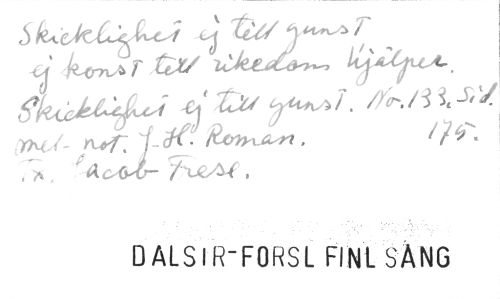 Skicklighet ej till gunst
ej konst till rikedom hjälper.
Skicklighet ej till gunst. No. 133. Sid.
mel- not. J-H. Roman. 175.
Tx. Jacob Frese.
DALSIR-FORSL FINL SÅNG